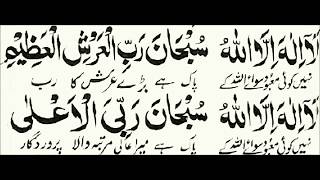 لَآ اِلٰهَ اِلَّا اللّٰهُ سُبْحَانَ رَبِّ الْعَرْشِ الْعَظِيْمِ
نہیں کوئی معبود سوائے اللہ کے پاک ہے بڑے عرش کا رب
لَآ اِلٰهَ اِلَّا اللّٰهُ سُبْحَانَ رَبِّيَ الْاَعْلٰى
نہیں کوئی معبود سوائے اللہ کے پاک ہے میرا عالی مرتبہ والا پروردگار